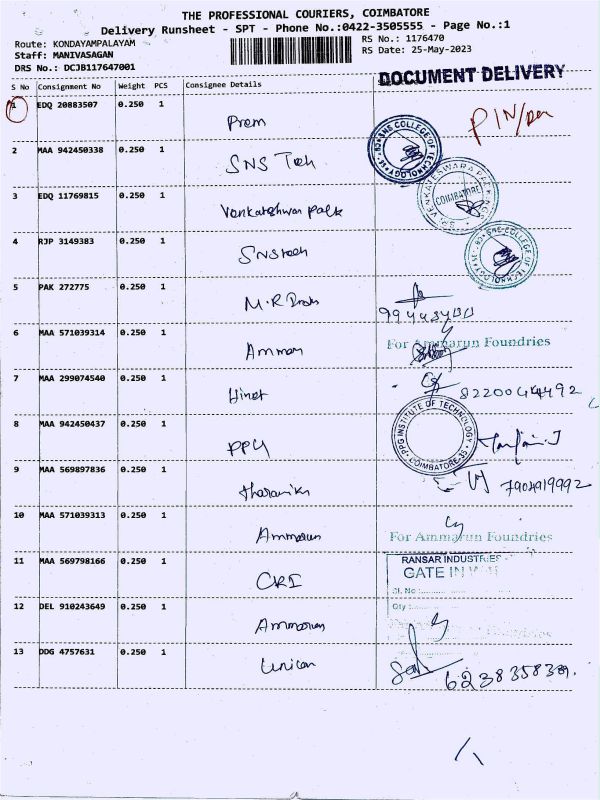 THE PROFESSIONAL COURIERS, COIMBATORE
Delivery Runsheet - SPT - Phone No.:0422-3505555 - Page No.:1
Route: KONDAYAMPALAYAM
Staff: MANIVASAGAN
DRS No.: DCJB117647001
RS No.: 1176470
RS Date: 25-May-2023
DOCUMENT DELIVERY
S No Consignment No Weight PCS Consignee Details
1 EDQ 20883507 0.250 1 Prem
PIN/
SNS COLLEGE OF TECHNOLOGY
2 MAA 942450338 0.250 1 SNS Tech
3 EDQ 11769815 0.250 1
COIMBATORE
4 RJP 3149383 0.250 1 SNS tech
SNS COLLEGE OF TECHNOLOGY
5 PAK 272775 0.250 1 M.R
6 MAA 571039314 0.250 1 Amman
For Ammarun Foundries
7 MAA 299074540 0.250 1
8220044492
8 MAA 942450437 0.250 1 PPG
PPG INSTITUTE OF TECHNOLOGY
COIMBATORE-35
9 MAA 569897836 0.250 1
7904919992
10 MAA 571039313 0.250 1 Ammarun
For Ammarun Foundries
11 MAA 569798166 0.250 1 CRI
RANSAR INDUSTRIES
GATE IN
Sl. No :
Qty :
12 DEL 910243649 0.250 1 Ammarun
13 DDG 4757631 0.250 1 Unican